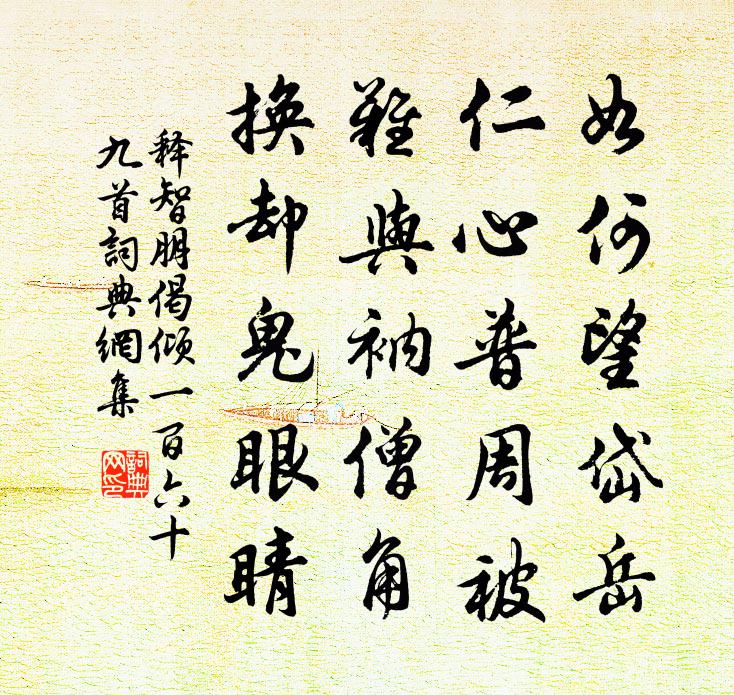 如何望岱岳
仁心普周被
難與衲僧角
換却鬼眼睛
释智朋偈倾一百六十
九首詞典網集
詞典網印